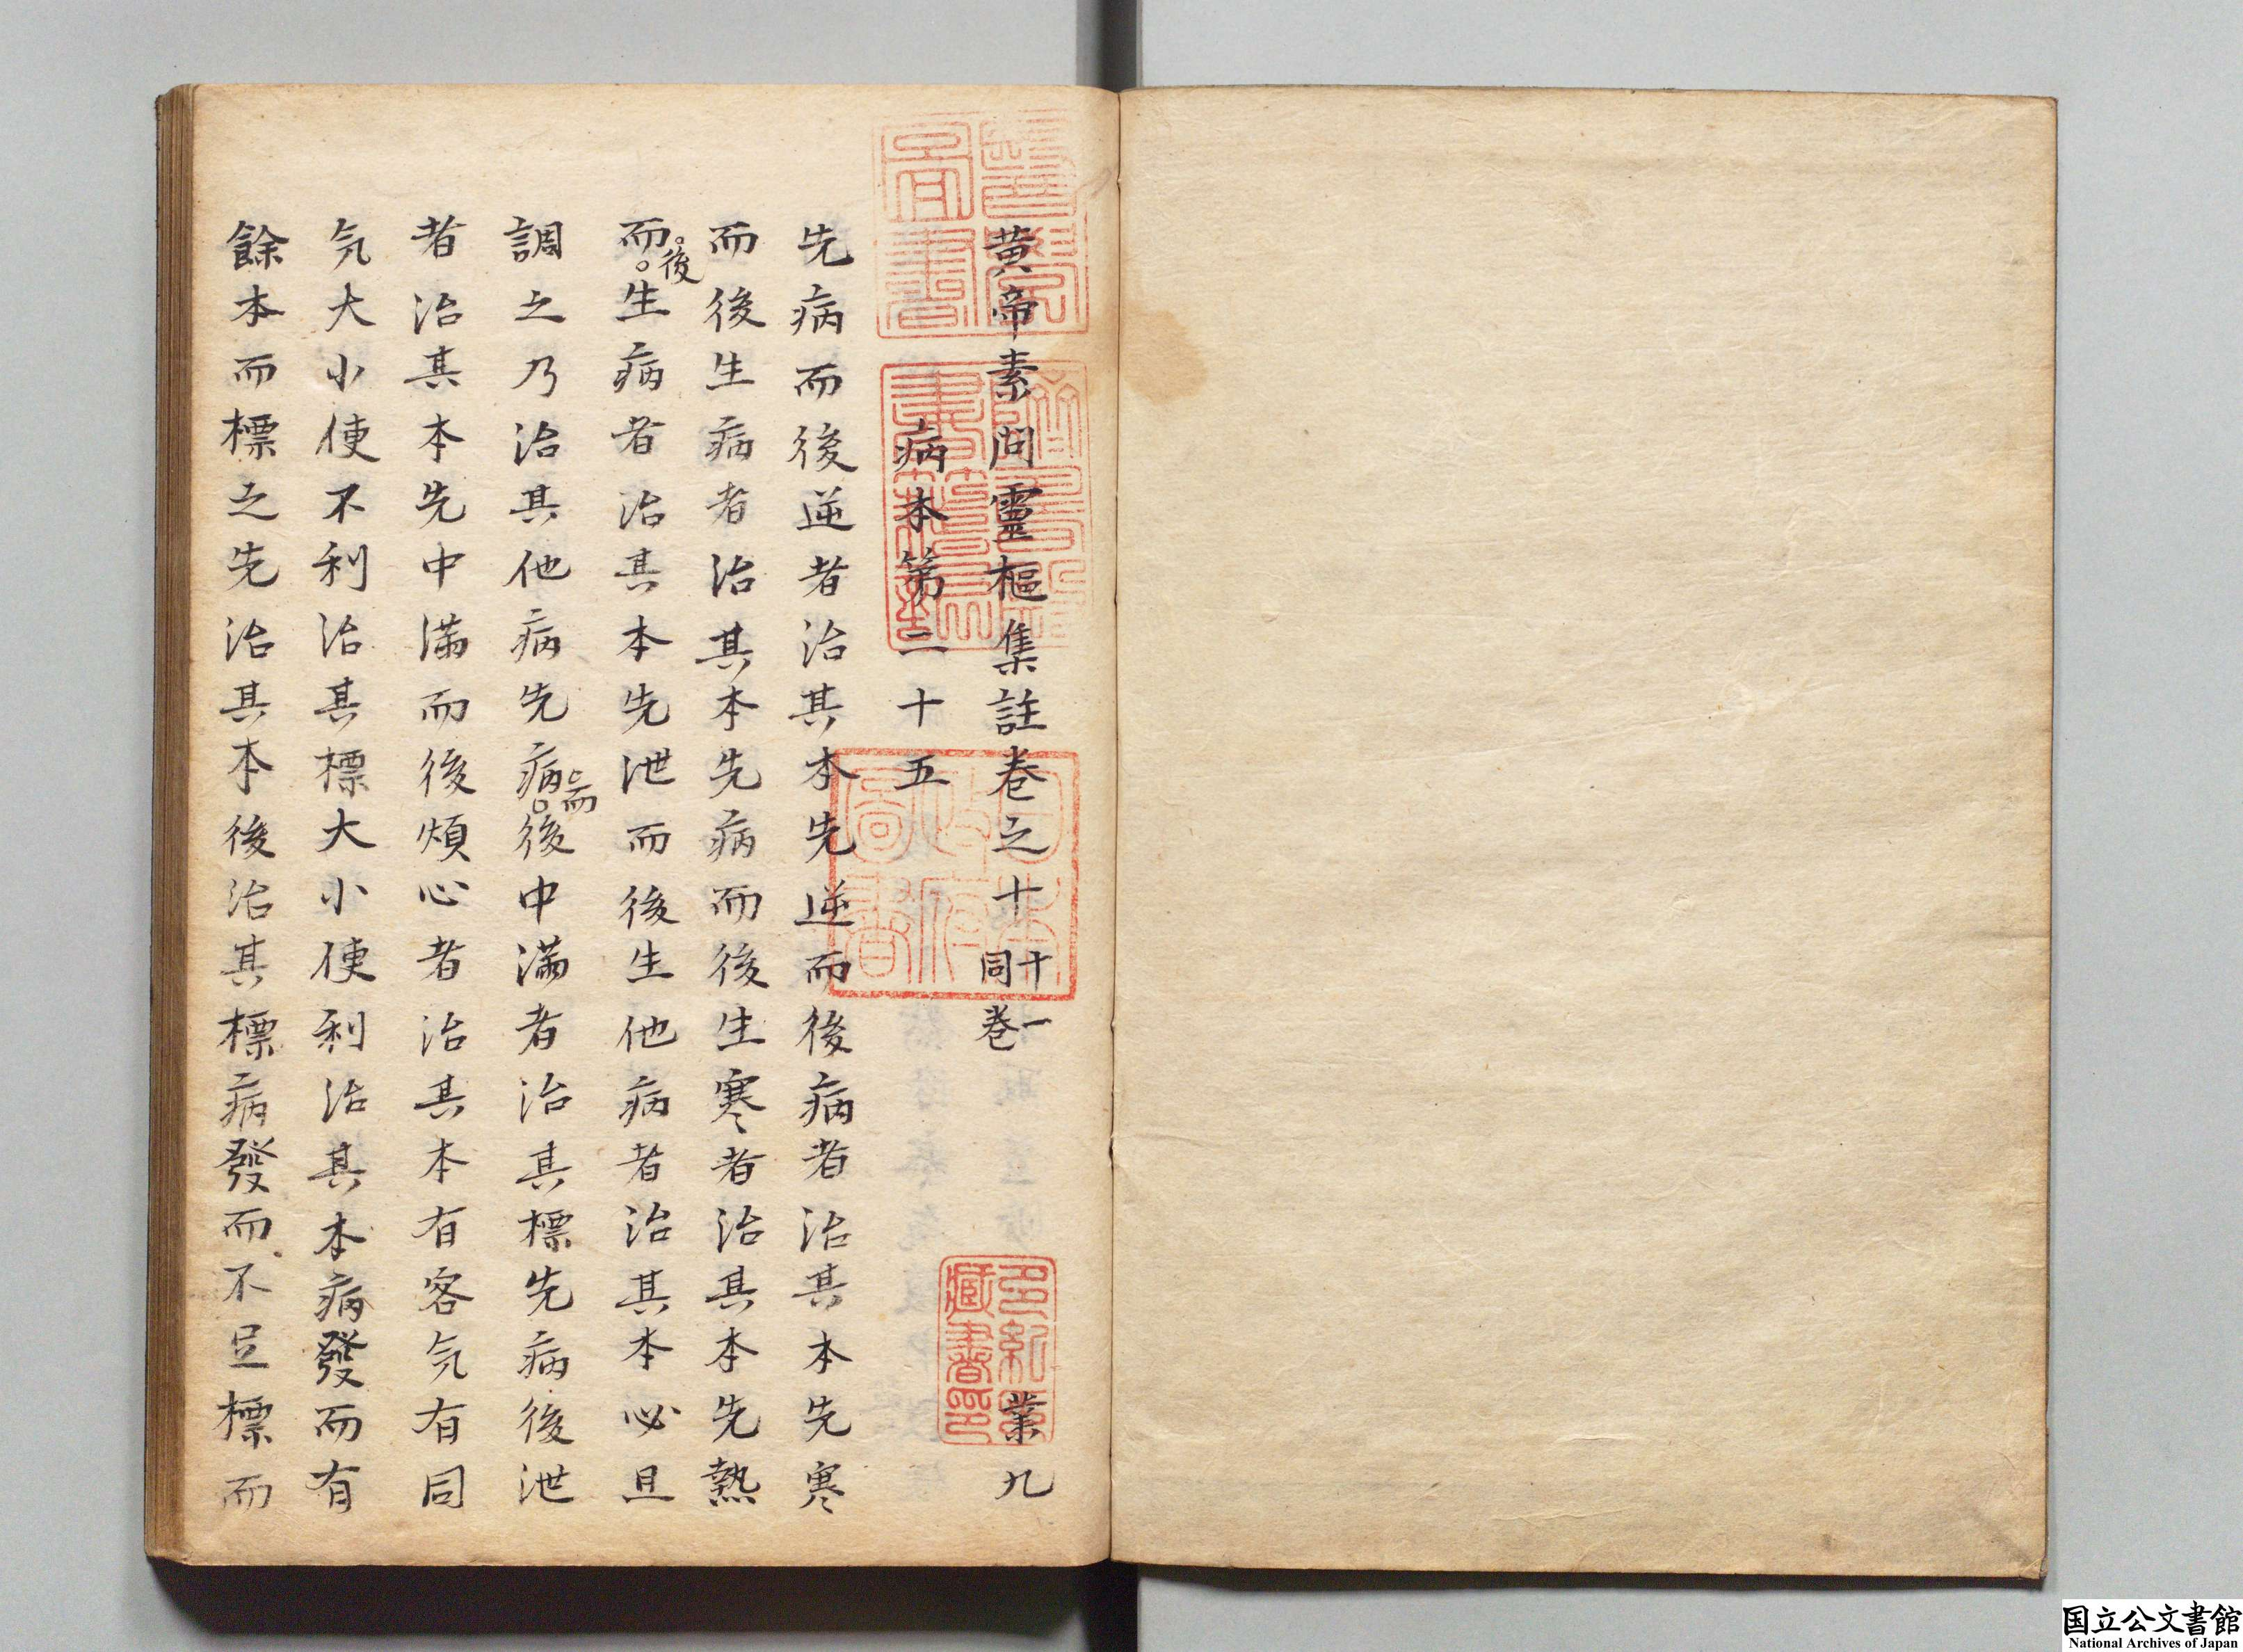 黄帝素問靈樞集註卷之十 十一同卷 業九
病本第二十五
先病而後逆者治其本先逆而後病者治其本先寒
而後生病者治其本先病而後生寒者治其本先熱
而後生病者治其本先泄而後生他病者治其本必且
調之乃治其他病先病而後中滿者治其標先病後泄
者治其本先中滿而後煩心者治其本有客気有同
気大小便不利治其標大小便利治其本病發而有
餘本而標之先治其本後治其標病發而不足標而
醫學圖書
躋壽館書籍記
日本政府圖書
多紀氏藏書印
国立公文書館
National Archives of Japan